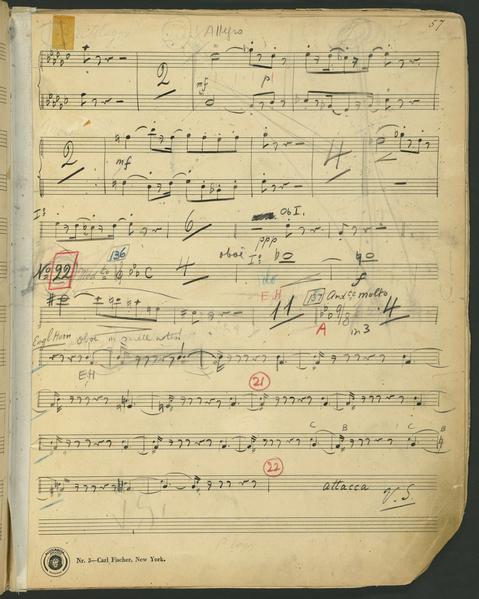 Allegro 57
2 mf p
2 mf 4
I° 6 Ob I.
ppp
No 22 Mod to 136 C 4 oboe I° f
E H 11 137 And te molto 4
A 9/8 in 3
Engl Horn oboe in small notes
EH
21
C B C B
22
attacca V.S.
Nr. 3—Carl Fischer, New York.